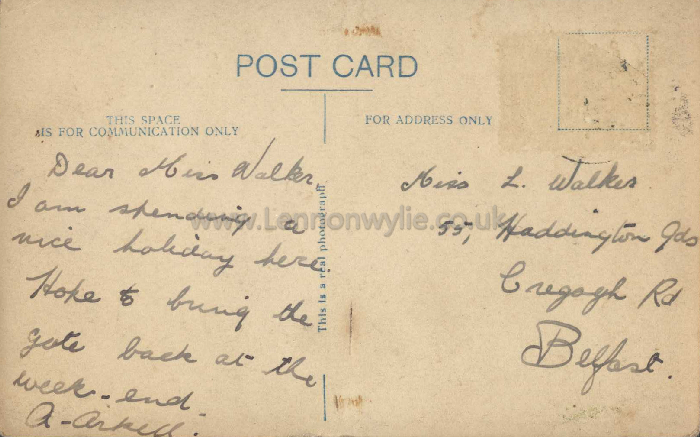 POST CARD
THIS SPACE
IS FOR COMMUNICATION ONLY
FOR ADDRESS ONLY
Dear Miss Walker
I am spending a
nice holiday here
Hope to bring the
gote back at the
week-end.
A-Arkell.
This is a real photograph
www.Lennonwylie.co.uk
Miss L. Walker
55, Haddington Gds
Cregagh Rd
Belfast.